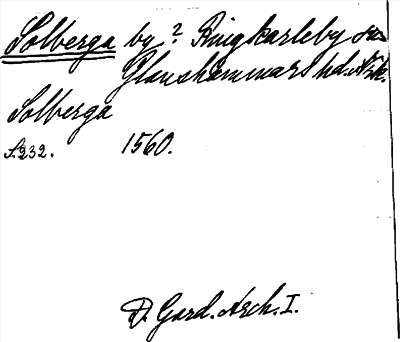 Solberga by? Ringkarleby sn
Glanshammars hd. Närk.
Solberga
S. 232. 1560.
D. Gard. Arch. I.